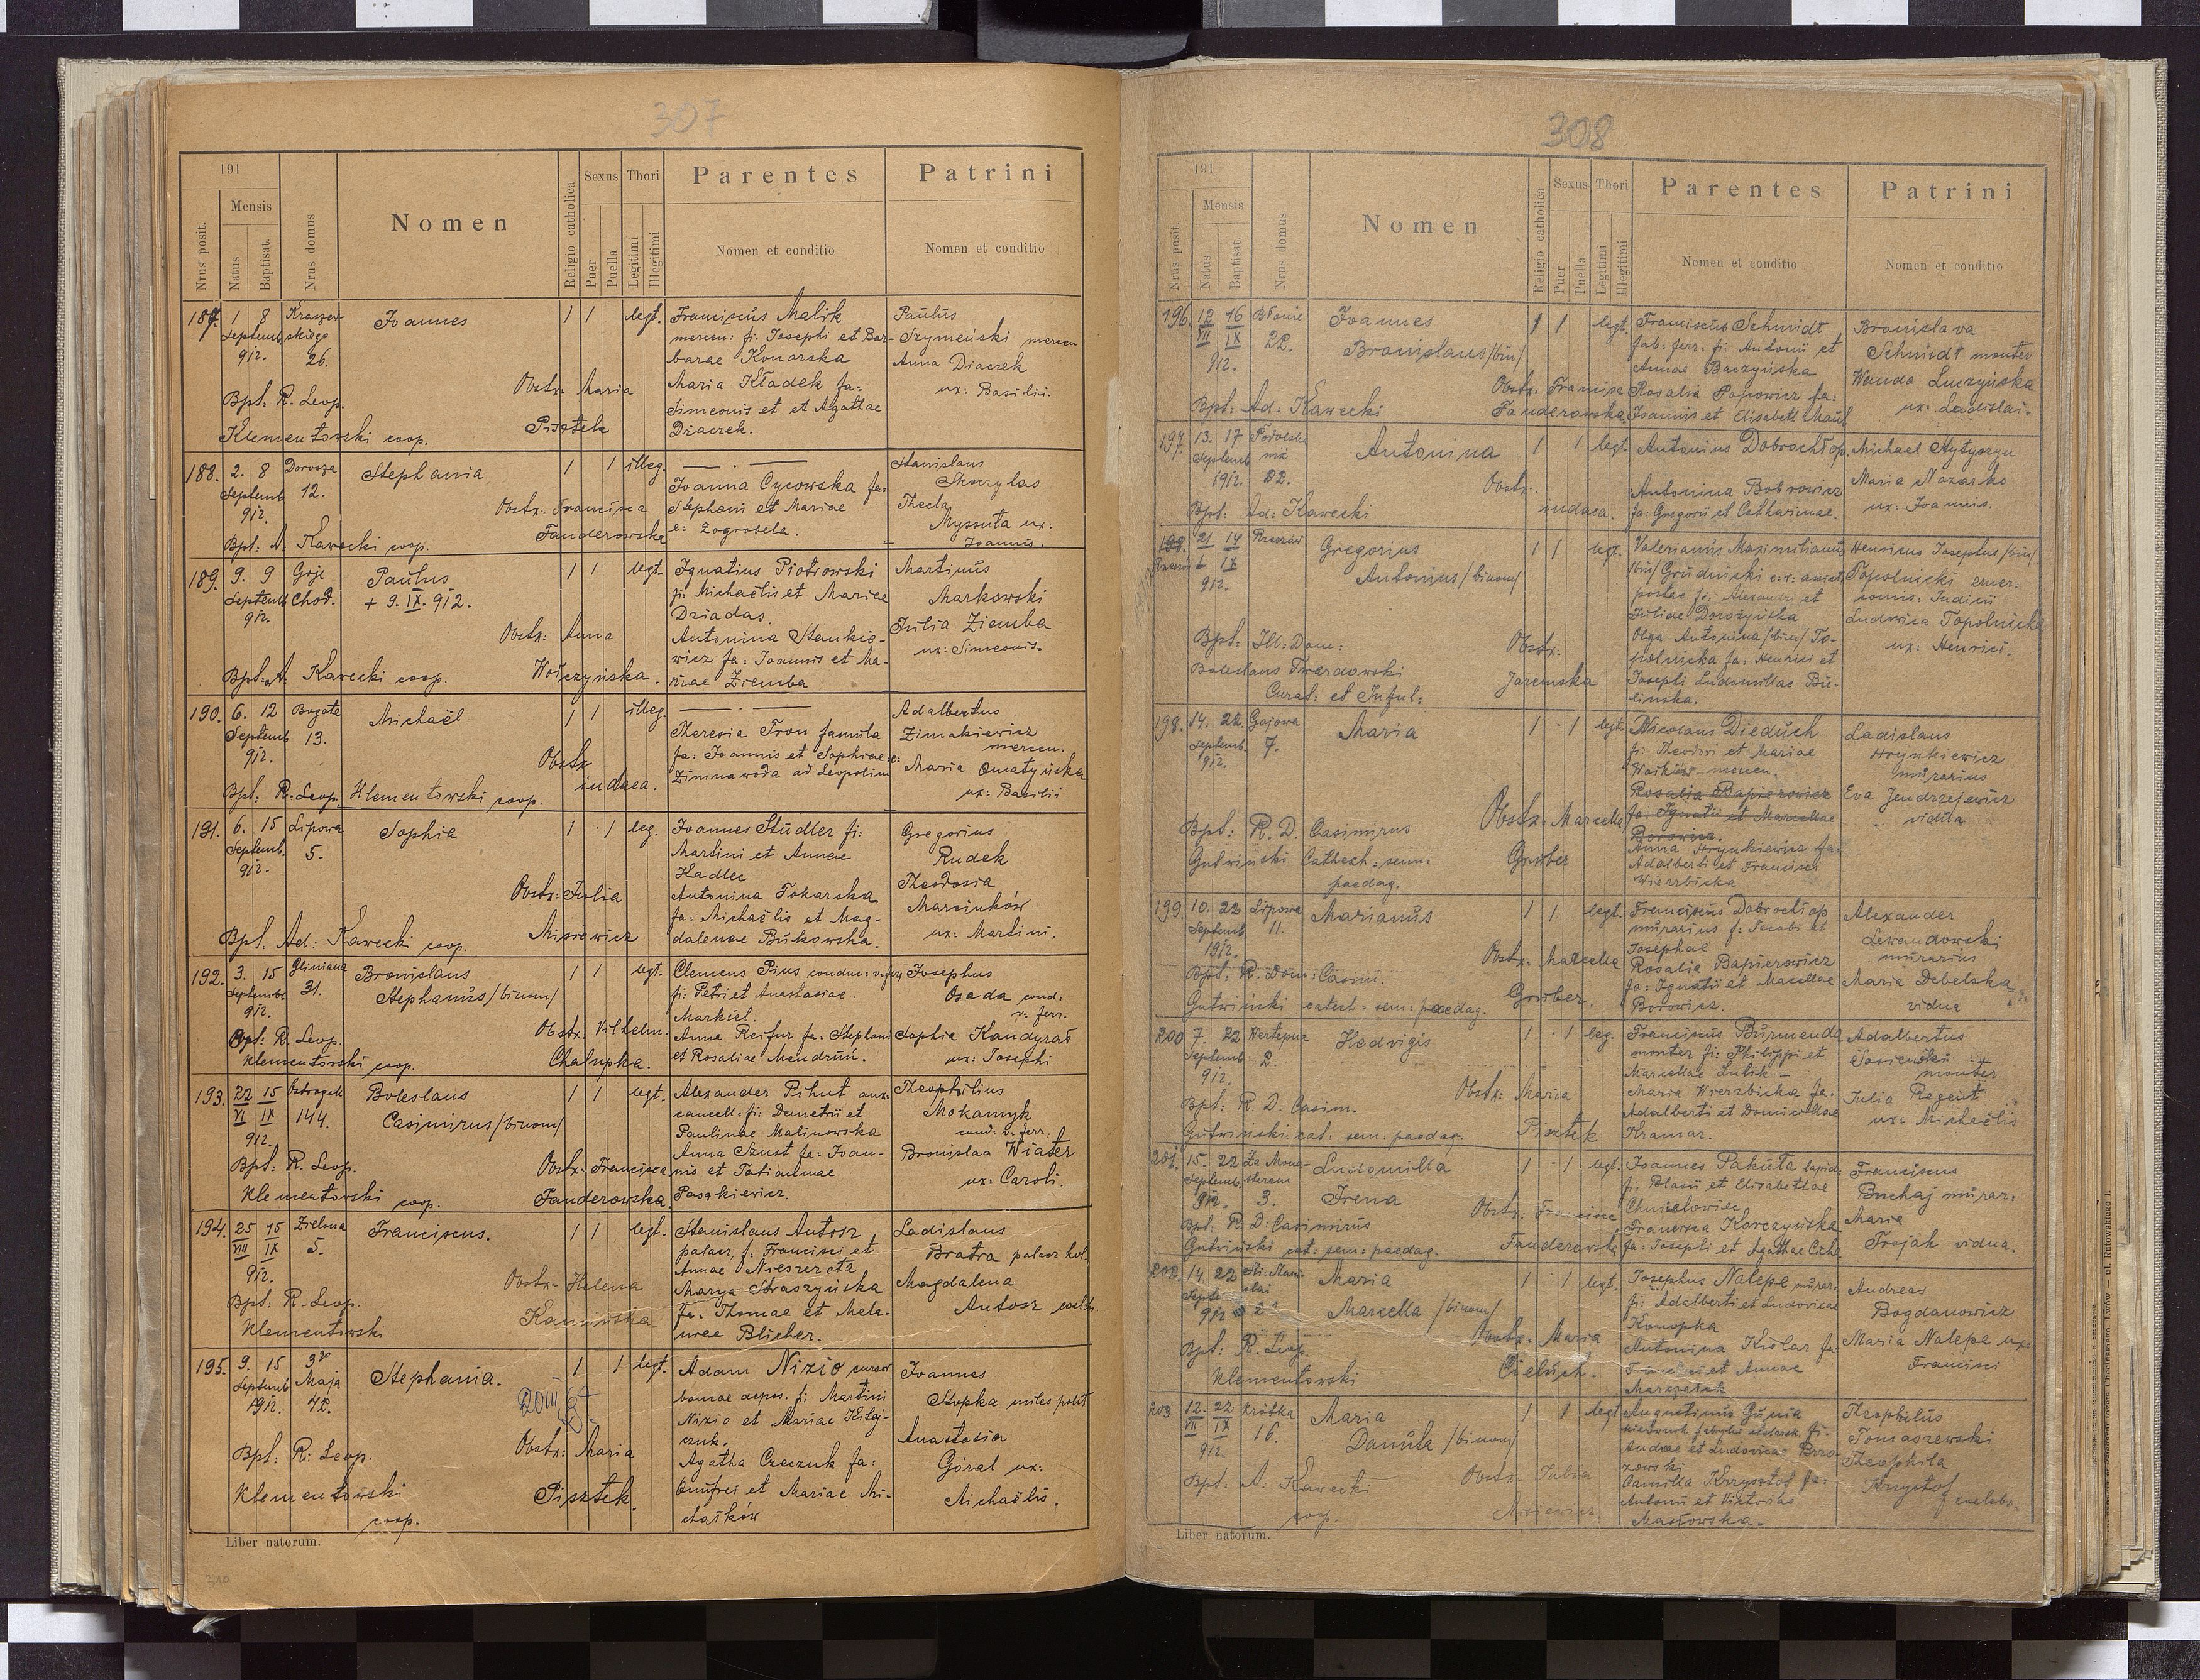 307
191
Nrus posit.
Mensis
Natus
Baptisat.
Nrus domus
Nomen
Religio catholica
Sexus
Puer
Puella
Thori
Legitimi
Illegitimi
Parentes
Nomen et conditio
Patrini
Nomen et conditio
187. 1 8 Kraszew- Joannes 1 1 legt. Franciscus Malik Paulus
Septemb skiego mercen: fi: Josephi et Bar- Szymeński mercen
912. 26. barae Konarska Anna Diaczek
Obstx: Maria Maria Kładek fa: ux: Basilii.
Bpt: R. Leop. Simeonis et et Agathae
Klementowski coop. Pisztek Diaczek.
188. 2. 8 Stephania 1 1 illeg. Stanislaus
Septemb 12. Joanna Cycowska fa: Skrzylas
912. Obstx: Francisca Stephani et Mariae Thecla
Fanderowska e: Zogrobela. Myssuta ux:
Bpt: A. Kawecki coop. Joannis.
189. 9. 9 Goje Paulus 1 1 legt. Ignatius Piotrowski Martinus
Septemb Chod. + 9. IX. 912. fi: Michaëlis et Mariae Markowski
912. Dziadas. Julia Ziemba
Obstx: Anna Antonina Stankie- ux: Simeonis.
wicz fa: Joannis et Ma-
Bpt: A. Kawecki coop. Wołczyńska. riae Ziemba
190. 6. 12 Bogata Michaël 1 1 illeg. Adalbertus
Septemb 13. Theresia Tron famula Zimakiewicz
912. fa: Joannis et Sophiae e: mercen.
Obstx Zimnawoda ad Leopolim Maria Onatyńska
Bpt: R. Leop. Klementowski coop. iudaea. ux: Basilii
191. 6. 15 Lipowa Sophia 1 1 leg. Joannes Studler fi: Gregorius
Septemb. 5. Martini et Annae Rudek
912. Kadlec Theodosia
Obstx: Julia Antonina Tokarska Marcinków
fa: Michaëlis et Mag- ux: Martini.
Bpt. Ad: Kawecki coop. Misiewicz dalenae Bukowska.
192. 3. 15 Gliniana Bronislaus 1 1 legt. Clemens Pius conduc: v. ferr Josephus
Septembr 31. Stephanus /binom/ fi: Petri et Anastasiae Osada cond:
912. Markiel. v: ferr.
Bpt: R. Leop. Obstx: Vilhelm. Anna Reifur fa: Stephani Sophia Kandyrał
Klementowski coop. Chalupka. et Rosaliae Mendrun. ux: Josephi
193. 22 15 Boleslaus 1 1 legt. Alexander Pihut aux: Theophilius
VI IX 144. Casimirus /binom/ cancell: fi: Demetrii et Mokamyk
912. Paulinae Malinowska cond: v. ferr.
Bpt: R. Leop. Obstx: Francisca Anna Szust fa: Joan- Bronislaa Wiater
Klementowski coop. Fanderowska. nis et Tatiannae ux: Caroli.
Pasakiewicz.
194. 25 15 Zielona Franciscus. 1 1 legt. Stanislaus Autosz Ladislaus
VIII IX 5. palacz fi: Francisci et Bratra palacz kol.
912. Annae Nieszczota Magdalena
Obstx: Helena Marya Straszyńska Autosz
Bpt: R. Leop. fa: Thomae et Mela-
Klementowski Kaminska niae Blicher.
195. 9. 15 3go Stephania. 1 1 legt. Adam Nizio cursor Joannes
Septemb Maja fi: Martini Stupka miles
1912. 42. Nizio et Mariae
czuk. Anastasia
Bpt: R: Leop. Obstx: Maria Agatha Czeczuk fa: Góral ux:
Klementowski Pisztek. Onufrei et Mariae Mi- Michaëlis.
coop. chałków
Liber natorum.
308
191
Nrus posit.
Mensis
Natus
Baptisat.
Nrus domus
Nomen
Religio catholica
Sexus
Puer
Puella
Thori
Legitimi
Illegitimi
Parentes
Nomen et conditio
Patrini
Nomen et conditio
196. 12 16 Błonie Joannes 1 1 legt. Franciscus Schmidt Bronislava
VII IX 22. Bronislaus /bin/ fab: ferr: fi: Antonii et Schmidt monter
912. Annae Baczyńska Wanda Luczyńska
Obstx: Francisca Rosalia Popowicz fa: ux: Ladislai.
Bpt: Ad: Kawecki Fanderowska Joannis et Elisabeth
197. 13. 17 Antonina 1 1 legt. Antonius Dobrochłop. Michael Hytyszyn
Septemb Maria Nazarko
1912. 22. Obstx: Antonina Bobrowicz ux: Joannis.
Bpt: Ad: Kawecki iudaea. fa: Gregorii et Catharinae.
198. 21 14 Gregorius 1 1 legt. Valerianus Maximilianus Henricus Josephus /bin/
IX Antonius /binom/ /bin/ Grudnicki c. r. assist. Topolnicki emer.
912. postae fi: Alexandri et comis: Iudicii
Juliae Dorożyńska Ludovica Topolnicka
Bpt: Ill: Dom: Obstx: Olga Antonina /bin/ To- ux: Henrici.
Boleslaus Twardowski polnicka fa: Henrici et
Curat: et Inful: Jaremska Josephi Ludomillae Bie-
linska.
198. 14. 22 Gajowa Maria 1 1 legt. Nicolaus Dieduch Ladislaus
Septemb. 7. fi: Theodori et Mariae Hrynkiewicz
912. mercen. murarius
Rosalia Bapierowicz Eva Jendrzejewicz
Obstx: Marcella fa: Ignatii et Marcellae vidua
Bpt: R. D. Casimirus Borowicz.
Gutwiński Cathech: sem: Gruber Anna Hrynkiewicz fa:
paedag. Adalberti et Francisci
Wierzbicka
199. 10. 22 Lipowa Marianus 1 1 legt. Franciscus Dobrochłop Alexander
Septemb 11. murarius f: Jacobi et Lewandowski
1912. Josephae murarius
Obstx: Marcella Rosalia Bapierowicz Maria Debelska
Bpt: R. Dom: Casim. fa: Ignatii et Macellae vidua
Gutwinski catech: sem: paedag. Gruber. Borowicz.
200 7. 22 Wertepna Hedvigis 1 1 leg. Franciscus Burmenda Adalbertus
Septemb 2. monter fi: Philippi et
912. Marcellae Lubik - monter
Obstx: Maria Maria Wierzbicka fa: Julia Regent
Bpt: R. D. Casim. Adalberti et Domicellae ux: Michaëlis
Gutwinski cat: sem: paedag. Pisztek Kramar.
201. 15. 22 Za Mona- Ludomilla 1 1 legt. Joannes Pakuta lapid: Franciscus
Septemb. sterem Irena fi: Blasii et Elisabethae Buchaj murar:
912. 3. Chmielowiec Maria
Bpt. R. D. Casimirus Obstx: Francisca Francisca Korczyńska Trojak vidua.
Gutwiński cat: sem: paedag. Fanderowska fa: Josephi et Agathae
202. 14. 22 Maria 1 1 legt. Josephus Nalepe murar. Andreas
Septe Marcella /binom/ fi: Adalberti et Ludovicae Bogdanowicz
912 Konopka Maria Nalepe ux:
Obstx: Maria Antonina Kolar fa: Francisci
Bpt: R. Leop. et Annae
Klementowski Cieluch. Marszałek
203 12. 22 Krótka Maria 1 1 legt Augustinus Gunia Theophilus
VII IX 16. Danuta /binom/ fi. Tomaszewski
912. Andreae et Ludovicae Brzo- Theophila
zowski Krzysztof
Bpt. A. Kawecki Obstx: Julia Camilla Krzysztof fa:
coop. Misiewicz. Antonii et Victoriae
Masłowska.
Liber natorum.